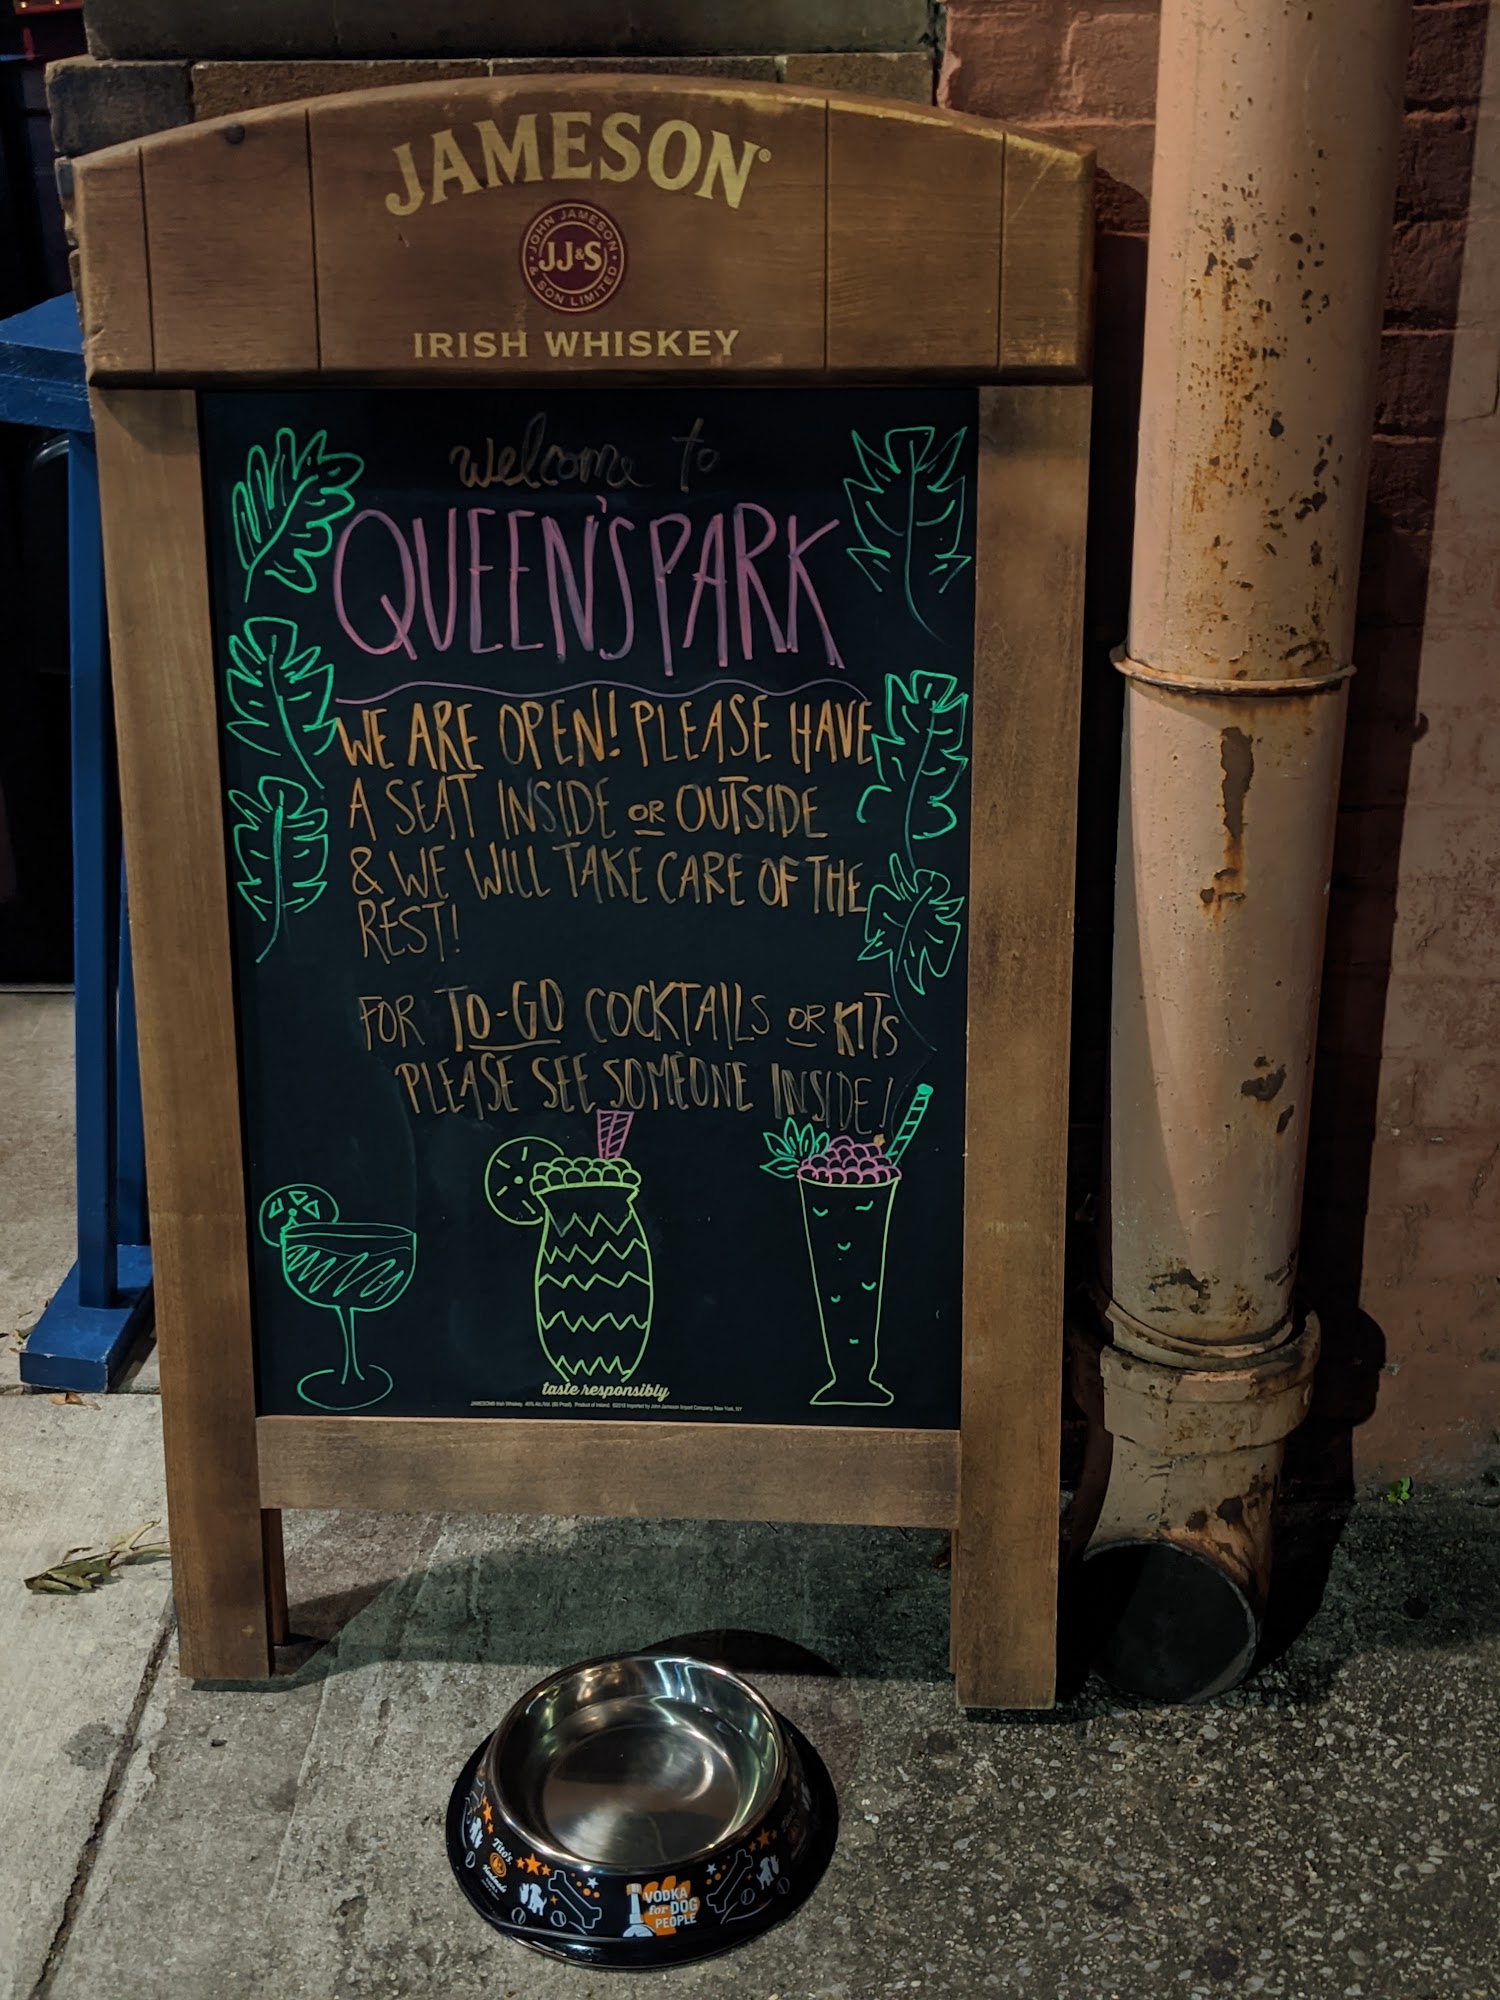 JAMESON®
JOHN JAMESON
JJ&S
& SON LIMITED
IRISH WHISKEY
welcome to
QUEEN'S PARK
WE ARE OPEN! PLEASE HAVE
A SEAT INSIDE OR OUTSIDE
& WE WILL TAKE CARE OF THE
REST!
FOR TO-GO COCKTAILS OR KITS
PLEASE SEE SOMEONE INSIDE!
taste responsibly
Tito's
Handmade
VODKA
for DOG
PEOPLE